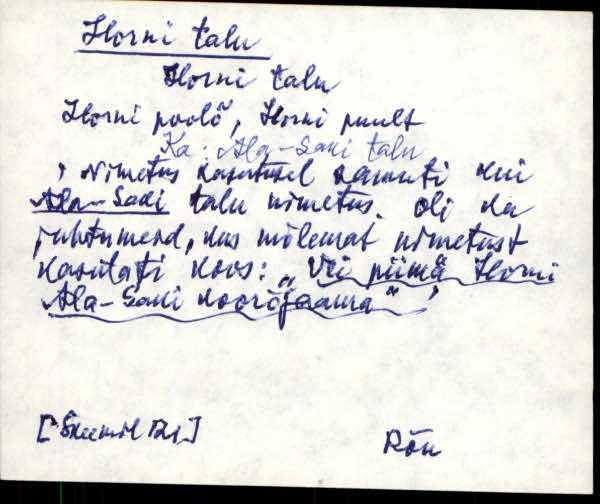 Horni talu
Horni talu
Horni poolõ, Horni puult
Ka: Ala-Saki talu
, Nimetus kasutusel samuti kui
Ala-Saki talu nimetus. Oli ka
juhtumeid, kus mõlemat nimetust
kasutati koos: „Vei piimä Horni
Ala-Saki koorõjaama"
[Skeemil 121]
Rõu